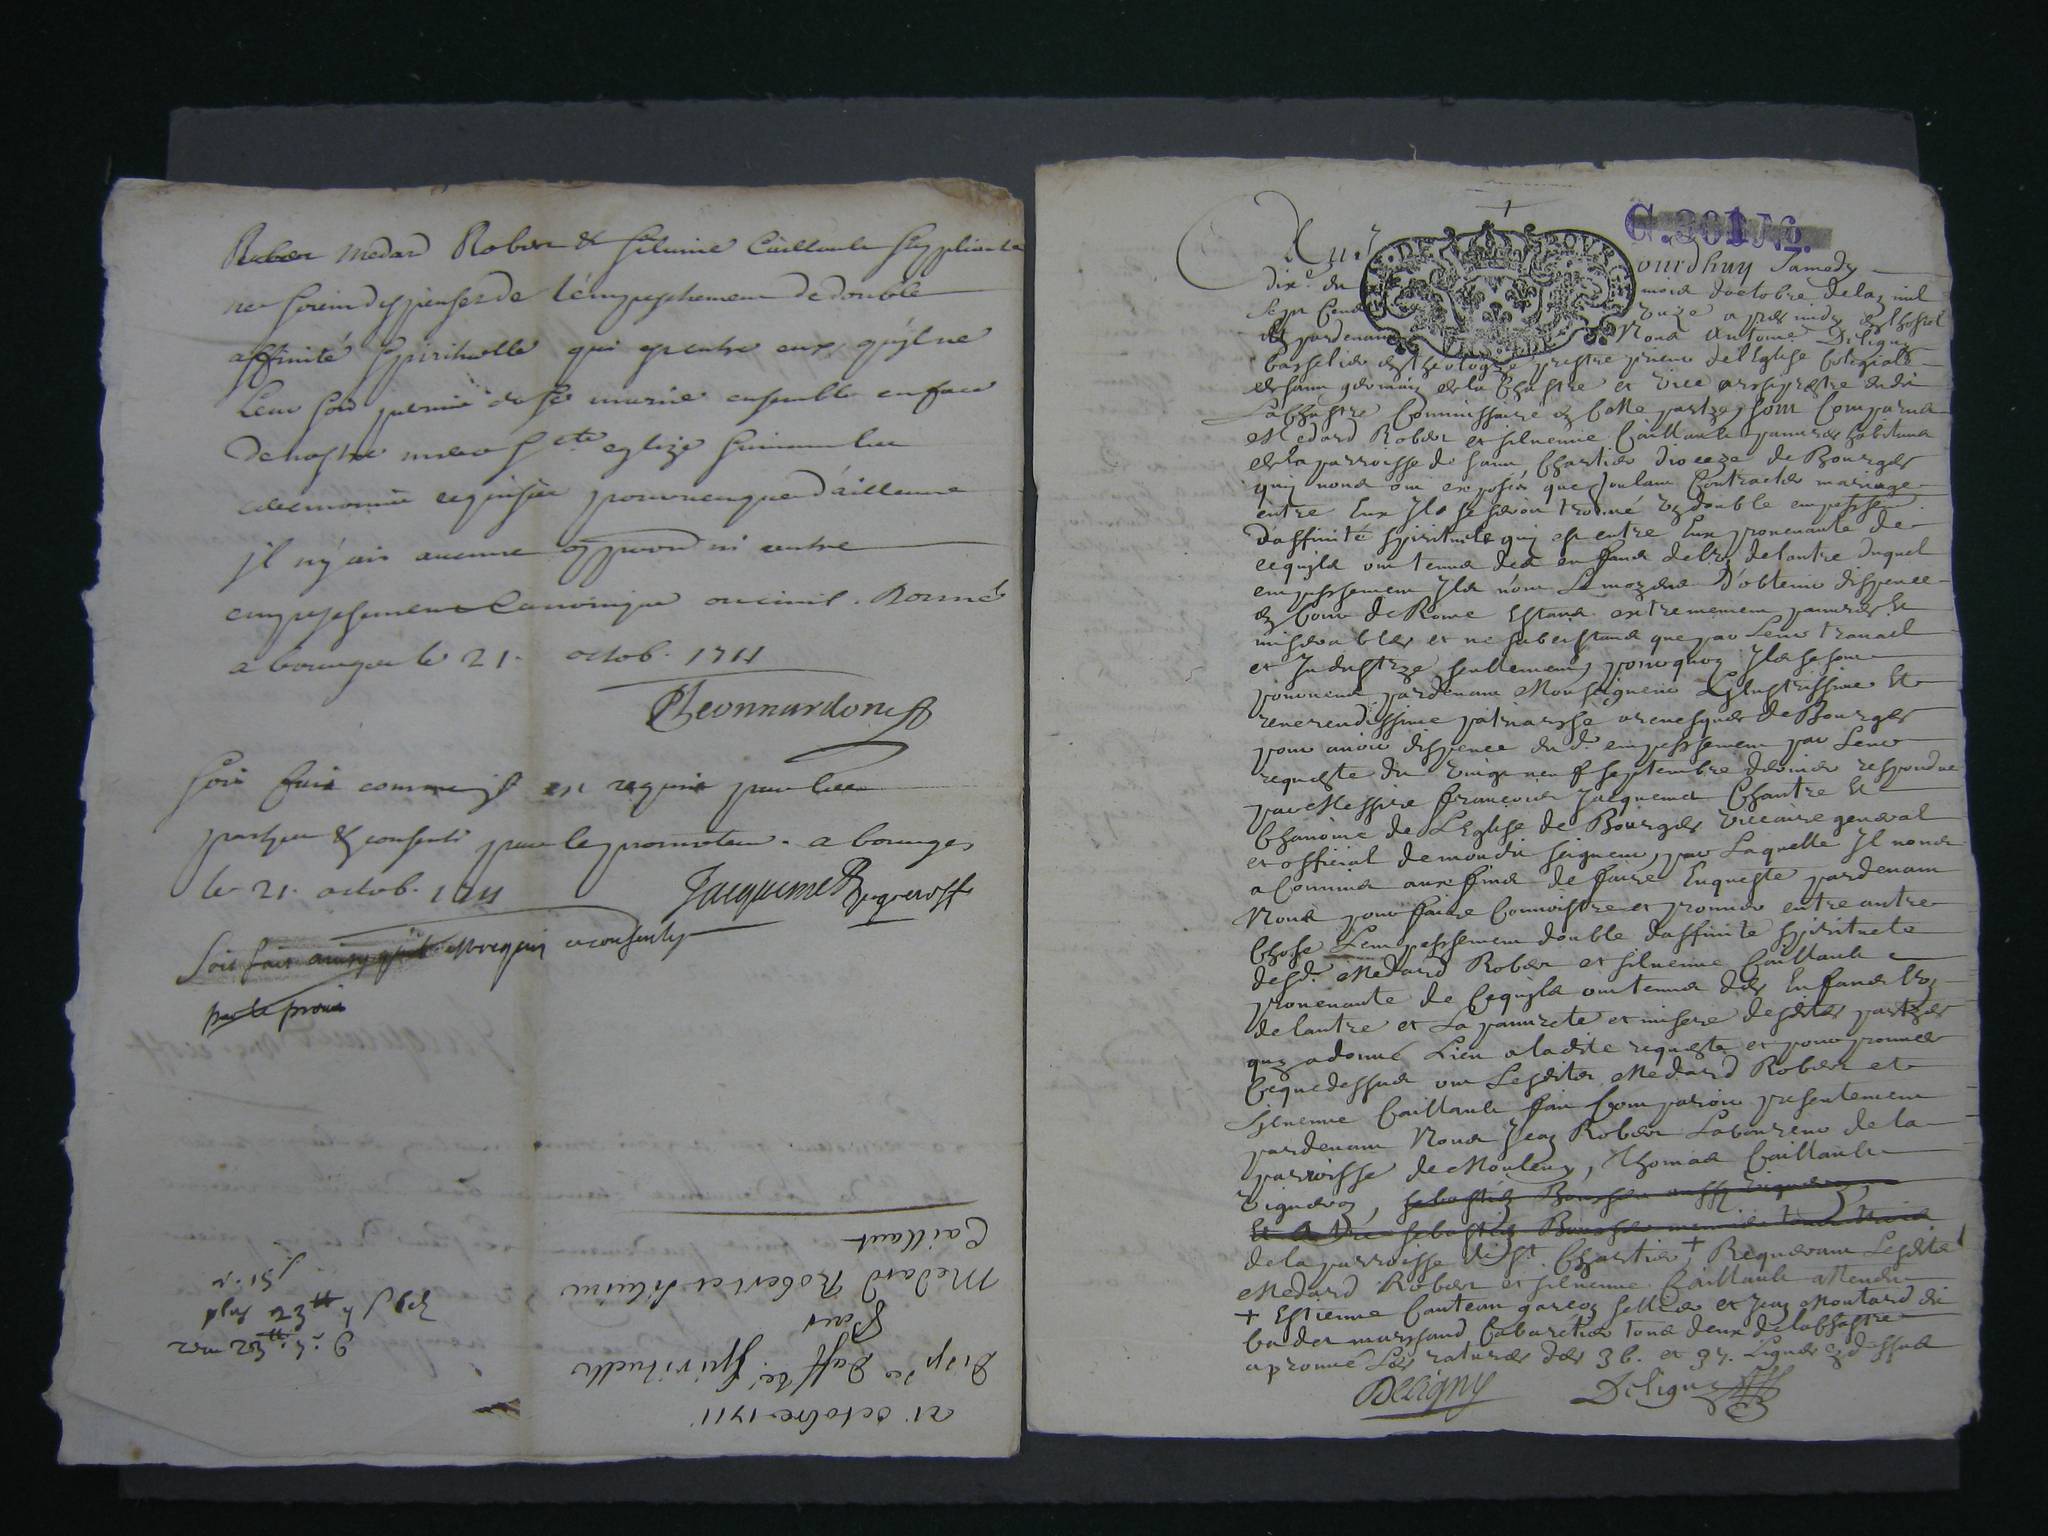 Rober Medard Rober & Silvine Caillault supplians
ne soient dispenser de l'empeschement de double
affinité spirituelle qui est entre eux, qu'il ne
leur soit permis de se marier ensemble en face
de nostre mere Ste eglize suivant les
ceremonies requises pourveu que d'ailleurs
il n'y ait aucune opposon ni autre
empeschement canonique ou civil. Donné
a bourges le 21. octob. 1711
soit fait comme il est requis par les
parties & consenti par le promoteur. a bourges
le 21. octob. 1711 Jacquemet
Soit fait ainsy qu'il est requis et consenty
par le prom
21 octobre 1711
Disp de d'aff té spirituelle
Pour
Medard Robert et Silvine
Caillaut
DE BOURGES
C. 301 No.
Aujourdhuy samedy
dixe du mois doctobre de lan mil
sept cens unze apres midy en lhostel
et pardevant Nous Antoine Deligny
bachelier en theologie prestre prieur de l'Eglise Colegiale
de saint germain de la Chastre et vice archiprestre dudit
Lachastre Commissaire en cette partye, sont comparus
Medard Rober et silvenne Caillault pauvres habitans
de la parroisse de saint Chartier dioceze de Bourges
quy nous ont exposés que voulant contracter mariage
entre Eux Ils se seroit trouvé un double empeschemt
d'affinité spirituele quy est entre Eux provenante de
cequils ont tenus des enfans de l'un de lautre duquel
empeschement Ils n'ont Le moyens d'obtenir dispence
en Cour de Rome Estans extremement pauvres et
miserables et ne subcistans que par Leur travail
et Industrye seullement, pourquoy Ils se sont
pourveus pardevant Monseigneur L'Illustrissime et
reverendissime patriarche archevesques de Bourges
pour avoir dispence du dt empeschement par Leur
requeste du vingt neuf septembre dernier respondue
par Messire françois Jacquemet Chantre et
Chanoine de L'Eglise de Bourges viccaire general
et official de mondit seigneur, par Laquelle Il nous
a Commis aux fins de faire Enqueste pardevant
Nous pour faire Connoistre et prouver entre autre
Chose Lempeschement double daffinité spirituele
desd. Medard Rober et silvenne Caillault
provenante de Cequils ont tenus des Enfans L'un
de lautre et La pauvreté et misere desdites partyes
quy a donné Lieu a ladite requeste et pour prouver
Ceque dessus ont Lesdites Medard Rober et
silvenne Caillault fait Comparoir presentement
pardevant Nous Jean Rober Laboureur de la
parroisse de Montlevy, Thomas Caillault
vigneron, sebastien Bourse aussy vigneron,
de la parroisse de St Chartier + Requerant Lesdites
Medard Rober et silvenne Caillault attendu
+ Estienne Cauteau garcon sellier et Jean Moutard dit
badet marchand Cabaretier tous deux de lachastre
aprouvé Les ratures des 36. et 37. Lignes cy dessus
Deligny Deligny